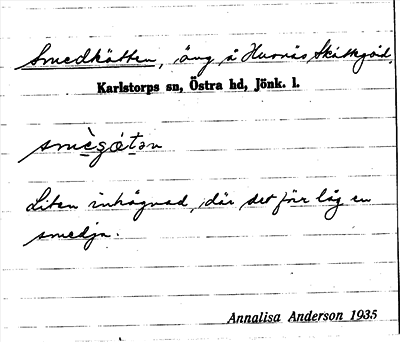 Smedkätten, äng å Hurvås Skattegård,
Karlstorps sn, Östra hd, Jönk. l.
Liten inhägnad, där det förr låg en
smedja.
Annalisa Anderson 1935